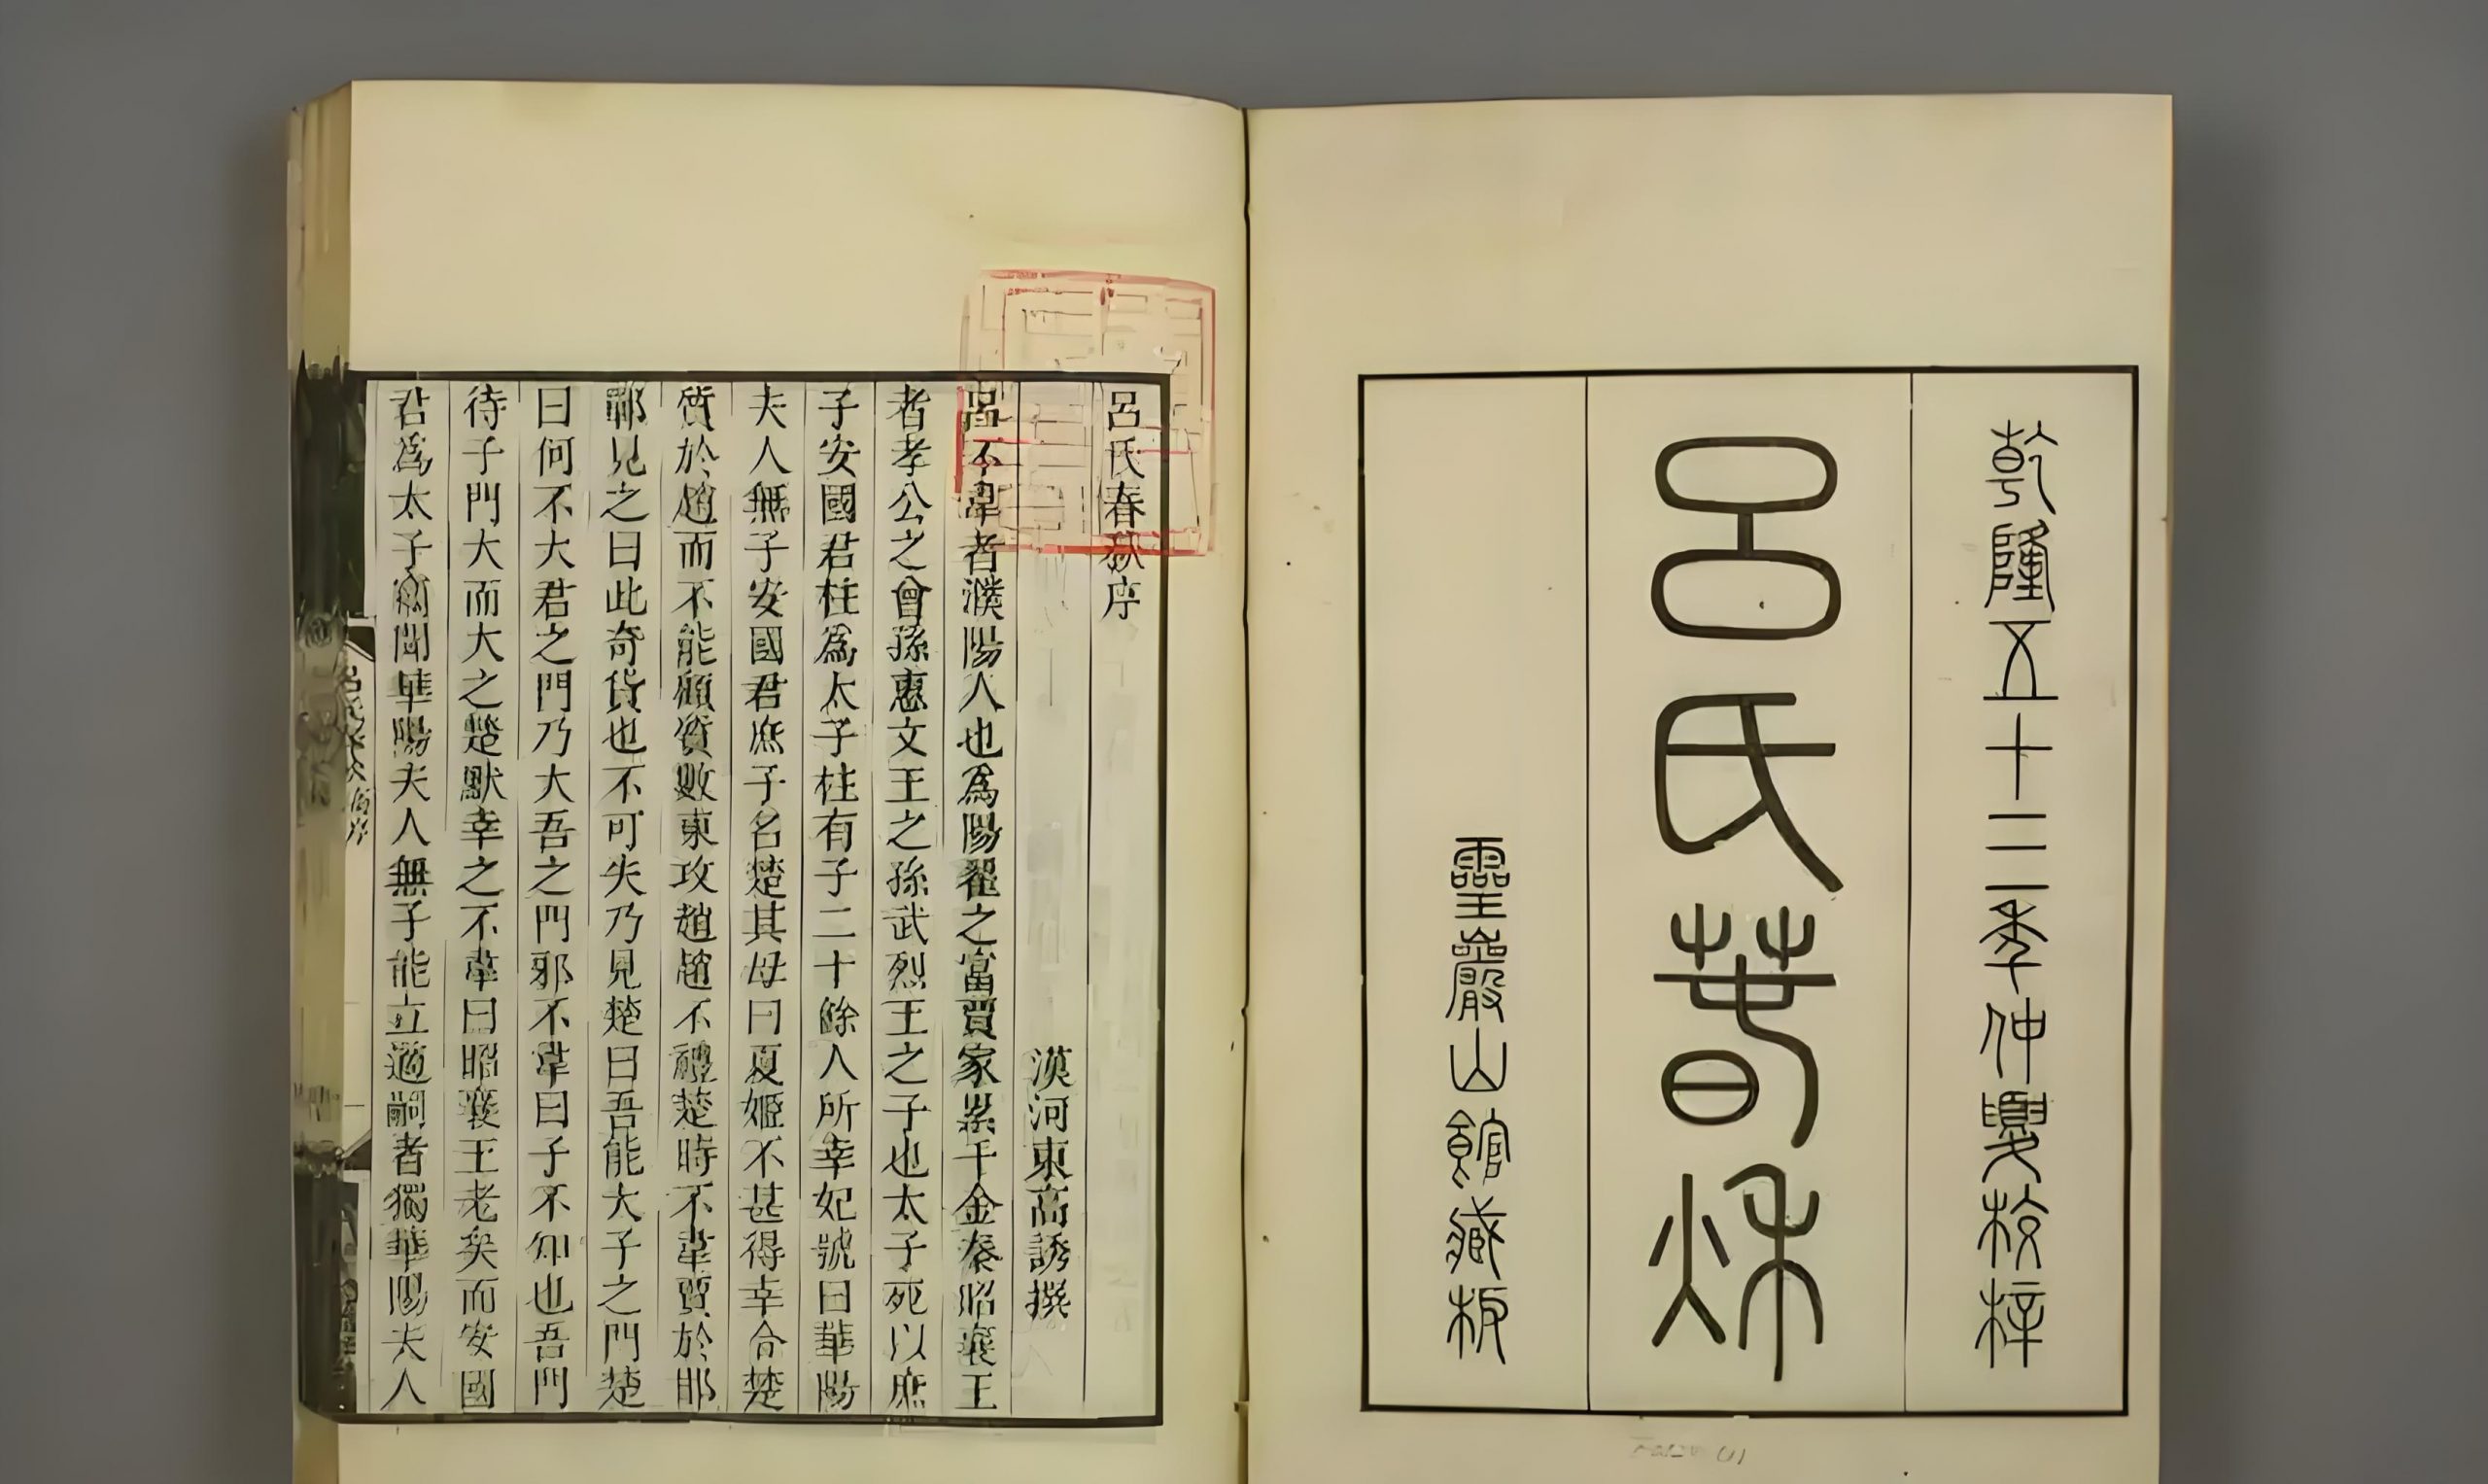 乾隆五十三秊仲夏校梓
呂氏春秌
靈巖山館藏板
呂氏春秋序
漢河東高誘撰
呂不韋者濮陽人也爲陽翟之富賈家累千金秦昭襄王
者孝公之曾孫惠文王之孫武烈王之子也太子死以庶
子安國君柱爲太子柱有子二十餘人所幸妃號曰華陽
夫人無子安國君庶子名楚其母曰夏姬不甚得幸令楚
質於趙而不能顧質數東攻趙趙不禮楚時不韋賈於邯
鄲見之曰此奇貨也不可失乃見楚曰吾能大子之門楚
曰何不大君之門乃大吾之門邪不韋曰子不知也吾門
待子門大而大之楚默幸之不韋曰昭襄王老矣而安國
君爲太子竊聞華陽夫人無子能立適嗣者獨華陽夫人